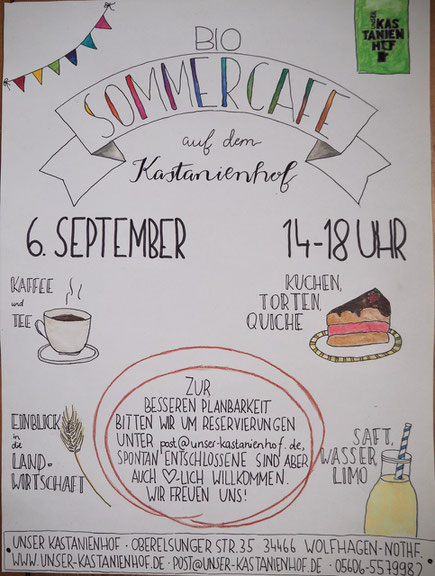 BIO
UNSER KAS
TANIEN
HOF
SOMMERCAFE
auf dem
Kastanienhof
6. SEPTEMBER
14-18 UHR
KAFFEE
und
TEE
KUCHEN,
TORTEN,
QUICHE
ZUR
BESSEREN PLANBARKEIT
BITTEN WIR UM RESERVIERUNGEN
UNTER post@unser-kastanienhof.de,
SPONTAN ENTSCHLOSSENE SIND ABER
AUCH ♡-LICH WILLKOMMEN.
WIR FREUEN UNS!
EINBLICK
in die
LAND-
WIRTSCHAFT
SAFT,
WASSER,
LIMO
UNSER KASTANIENHOF · OBERELSUNGER STR. 35 34466 WOLFHAGEN-NOTHF.
WWW.UNSER-KASTANIENHOF.DE · POST@UNSER-KASTANIENHOF.DE · 05606-5579982